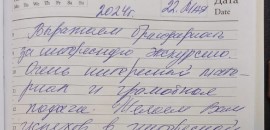 Дата
Date
2024г. 22. Мая
Выражаем благодарность
за интересную экскурсию.
Очень интересный мате-
риал и грамотная
подача. Желаем Вам
успехов в